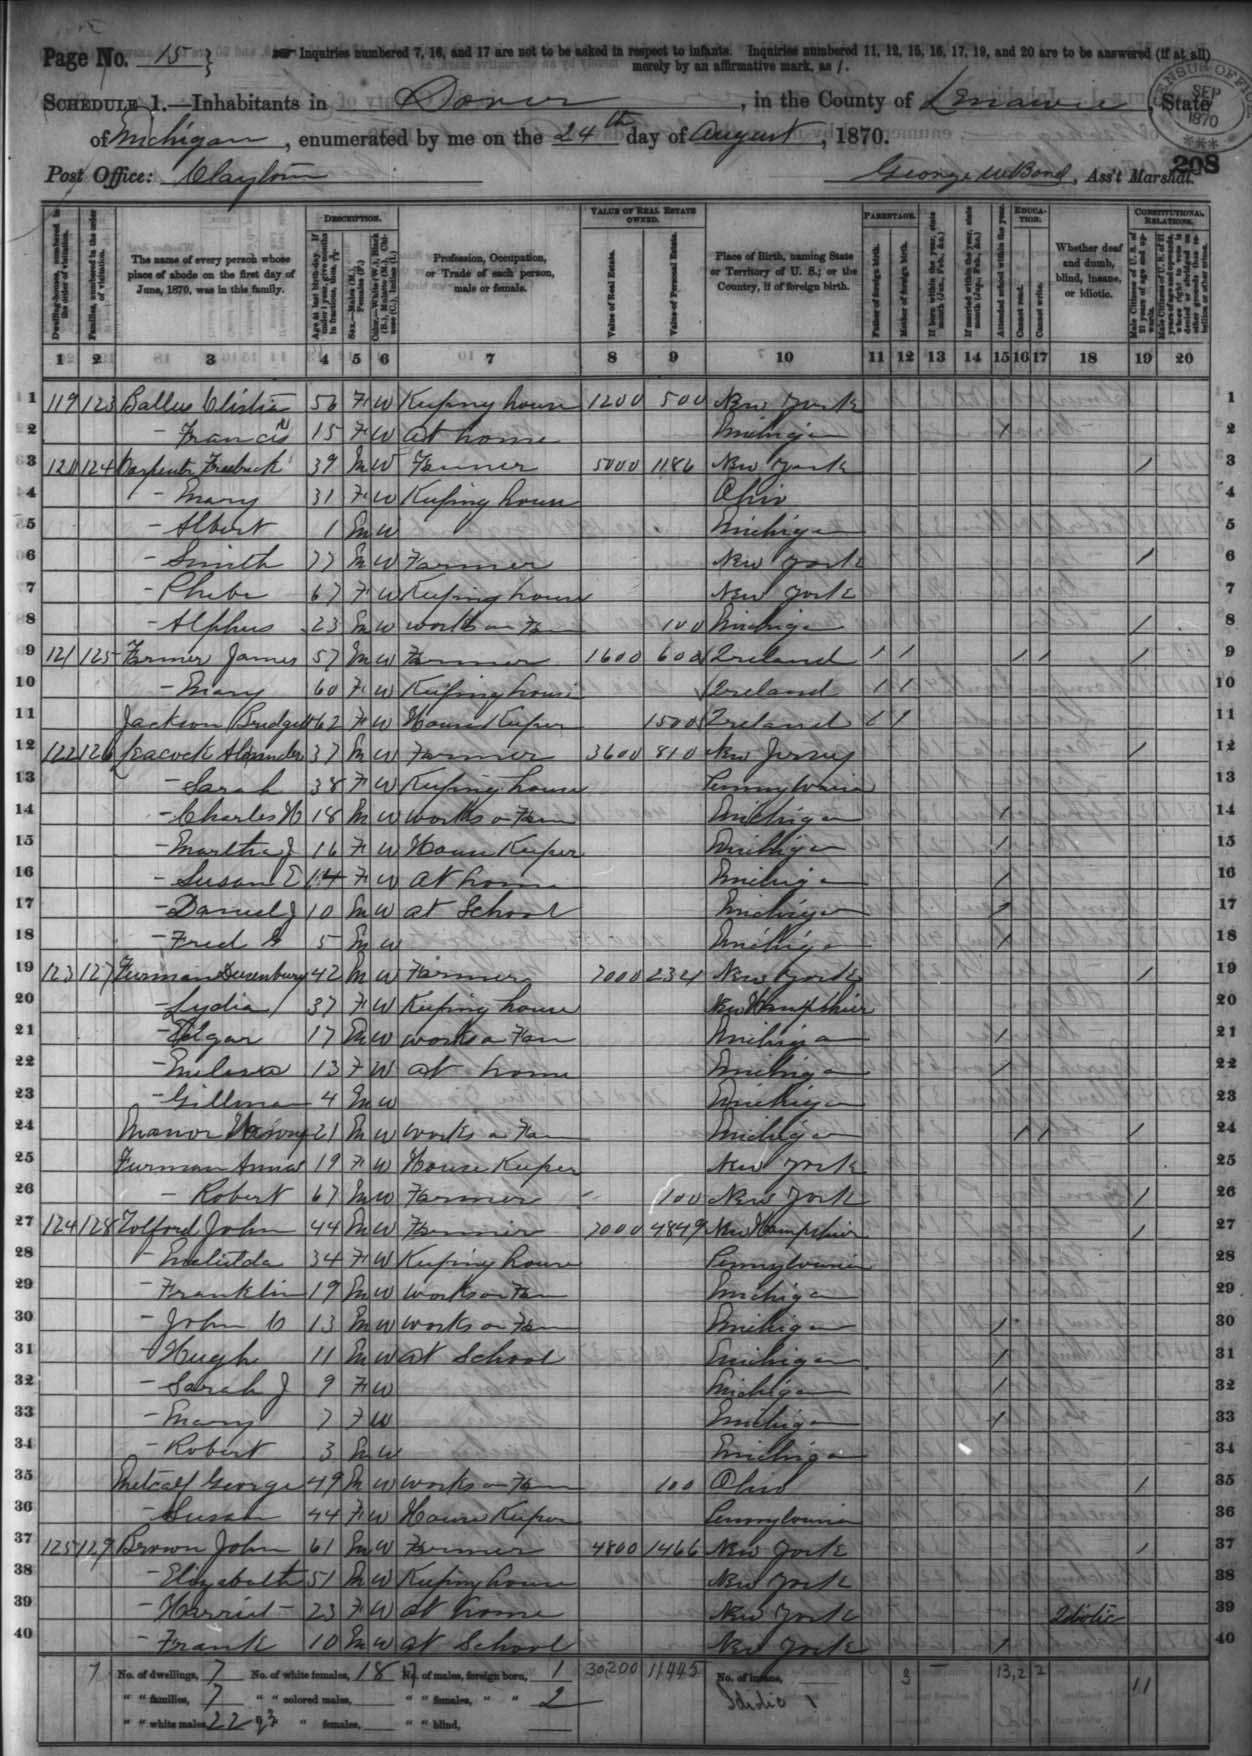 Page No. 15 } Inquiries numbered 7, 16, and 17 are not to be asked in respect to infants. Inquiries numbered 11, 12, 15, 16, 17, 19, and 20 are to be answered (if at all)
merely by an affirmative mark, as /.
SCHEDULE 1.—Inhabitants in Dover, in the County of Lenawee, State
of Michigan, enumerated by me on the 24th day of August, 1870.
CENSUS OFFICE SEP 1870
208
Post Office: Clayton George W Bond, Ass't Marshal.
DESCRIPTION. VALUE OF REAL ESTATE OWNED. PARENTAGE. EDUCATION. CONSTITUTIONAL RELATIONS.
Dwelling-houses, numbered in the order of visitation.
Families, numbered in the order of visitation.
The name of every person whose place of abode on the first day of June, 1870, was in this family.
Age at last birth-day. If under 1 year, give months in fractions, thus, 3/12
Sex.—Males (M.), Females (F.)
Color.—White (W.), Black (B.), Mulatto (M.), Chinese (C.), Indian (I.)
Profession, Occupation, or Trade of each person, male or female.
Value of Real Estate.
Value of Personal Estate.
Place of Birth, naming State or Territory of U. S.; or the Country, if of foreign birth.
Father of foreign birth.
Mother of foreign birth.
If born within the year, state month (Jan., Feb., &c.)
If married within the year, state month (Jan., Feb., &c.)
Attended school within the year.
Cannot read.
Cannot write.
Whether deaf and dumb, blind, insane, or idiotic.
Male Citizens of U. S. of 21 years of age and upwards.
1 2 3 4 5 6 7 8 9 10 11 12 13 14 15 16 17 18 19 20
1 119 123 56 F W Keeping house 1200 500 New York 1
2 – Francis 15 F W at home Michigan / 2
3 120 124 Carpenter Fredrick 39 M W Farmer 5000 1186 New York / 3
4 – Mary 31 F W Keeping house Ohio 4
5 – Albert 1 M W Michigan 5
6 – Smith 77 M W Farmer New York / 6
7 – Phebe 67 F W Keeping house New York 7
8 – Alpheus 23 M W works on Farm 100 Michigan / 8
9 121 125 Farmer James 57 M W Farmer 1600 600 Ireland / / / / / 9
10 – Mary 60 F W Keeping house Ireland / / 10
11 Jackson Bridgett 62 F W House Keeper 1500 Ireland / / 11
12 122 126 Peacock Alexander 37 M W Farmer 3600 810 New Jersey / 12
13 – Sarah 38 F W Keeping house Pennsylvania 13
14 – Charles H 18 M W works on Farm Michigan / 14
15 – Martha J 16 F W House Keeper Michigan / 15
16 – Susan E 14 F W at home Michigan / 16
17 – Daniel J 10 M W at School Michigan / 17
18 – Fred G 5 M W Michigan / 18
19 123 127 Furman Dusenbury 42 M W Farmer 7000 2321 New York / 19
20 – Lydia 37 F W Keeping house New Hampshire 20
21 – Elgar 17 M W works on Farm Michigan / 21
22 – Melissa 13 F W at home Michigan / 22
23 – Gillman 4 M W Michigan 23
24 Manor 21 M W works on Farm Michigan / / / 24
25 Furman Anna 19 F W House Keeper New York 25
26 – Robert 67 M W Farmer 100 New York / 26
27 124 128 Tolford John 44 M W Farmer 7000 4849 New Hampshire / 27
28 – Melitda 34 F W Keeping house Pennsylvania 28
29 – Franklin 19 M W works on Farm Michigan 29
30 – John C 13 M W works on Farm Michigan / 30
31 – Hugh 11 M W at School Michigan / 31
32 – Sarah J 9 F W Michigan / 32
33 – Mary 7 F W Michigan / 33
34 – Robert 3 M W Michigan 34
35 Metcalf George 49 M W works on Farm 100 Ohio / 35
36 – Susan 44 F W House Keeper Pennsylvania 36
37 125 129 Brown John 61 M W Farmer 4800 1466 New York / 37
38 – Elizabeth 51 F W Keeping house New York 38
39 – Harriet 23 F W at home New York Idiotic 39
40 – Frank 10 M W at School New York / 40
7 No. of dwellings, 7 No. of white females, 18 No. of males, foreign born, 1 30,200 11445 No. of insane, 3 13,2 2 11
" " families, 7 " " colored males, " " females, " " 2 Idiotic 1
" " white males, 22 " " females, " " blind,